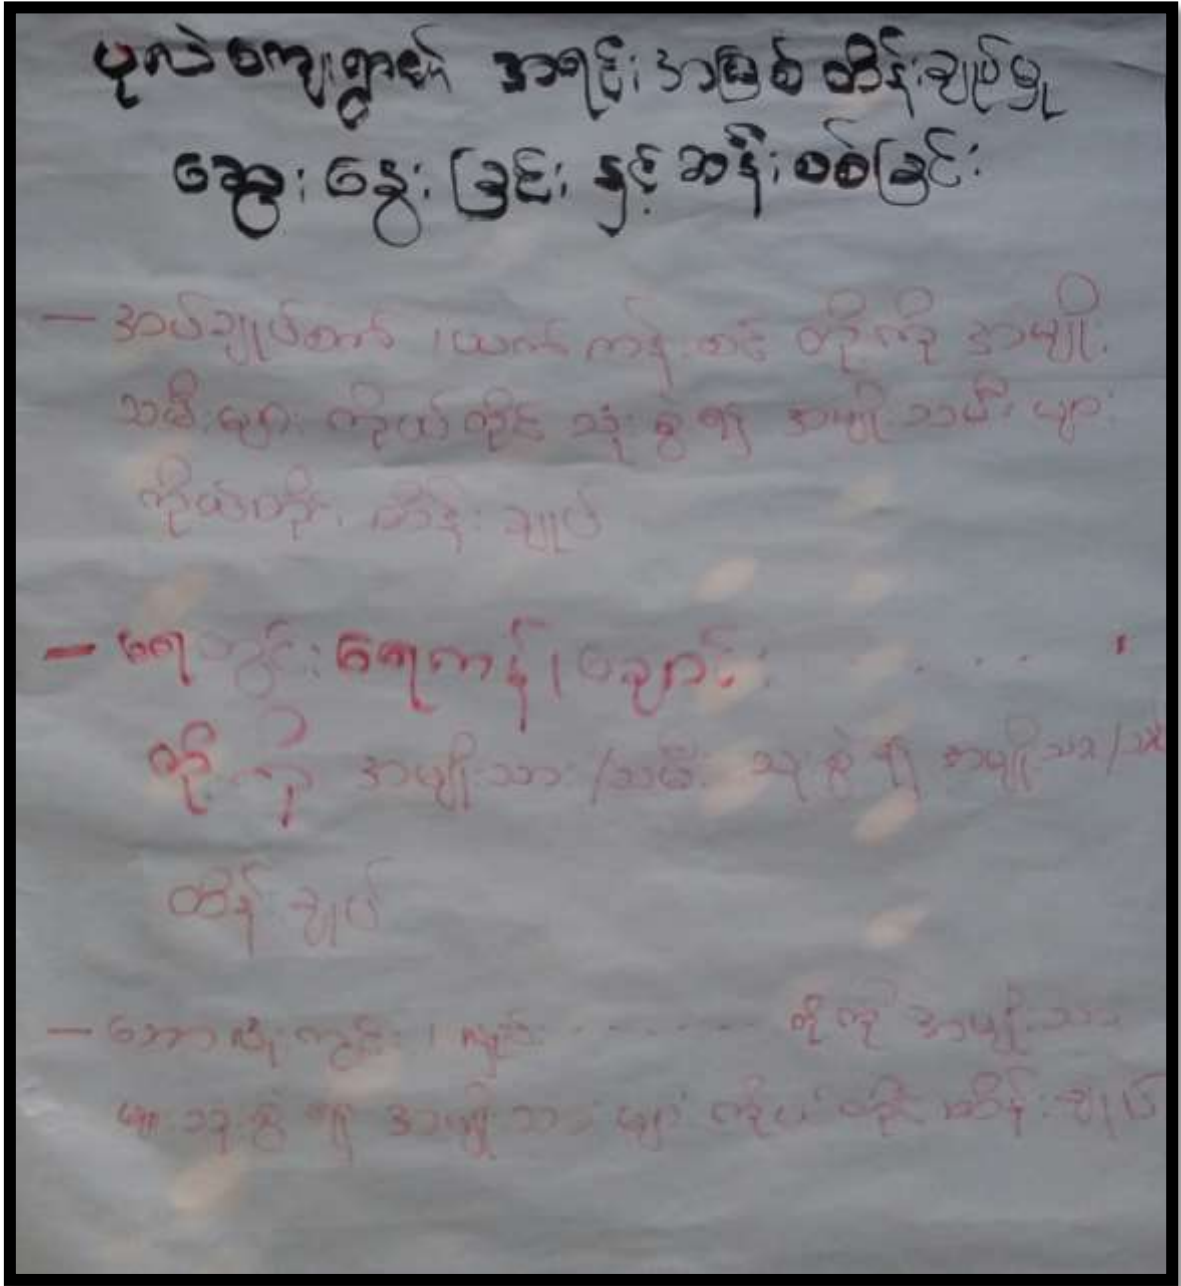 ပုလဲကျေးရွာ၏ အရင်းအမြစ် ထိန်းချုပ်မှု
ဆွေးနွေးခြင်း နှင့် ဆန်းစစ်ခြင်း
– အပ်ချုပ်စက် ၊ ယက်ကန်းစင် တို့ကို အမျိုး
သမီးများ ကိုယ်တိုင် သုံးစွဲ၍ အမျိုးသမီးများ
ကိုယ်တိုင် ထိန်းချုပ်
– ရေတွင်း ရေကန် ၊ ချောင်း
တို့ကို အမျိုးသား/သမီး သုံးစွဲ၍ အမျိုးသား/သမီး
ထိန်းချုပ်
– ဘောလုံးကွင်း ၊ ........ တို့ကို အမျိုးသား
များ သုံးစွဲ၍ အမျိုးသားများ ကိုယ်တိုင် ထိန်းချုပ်